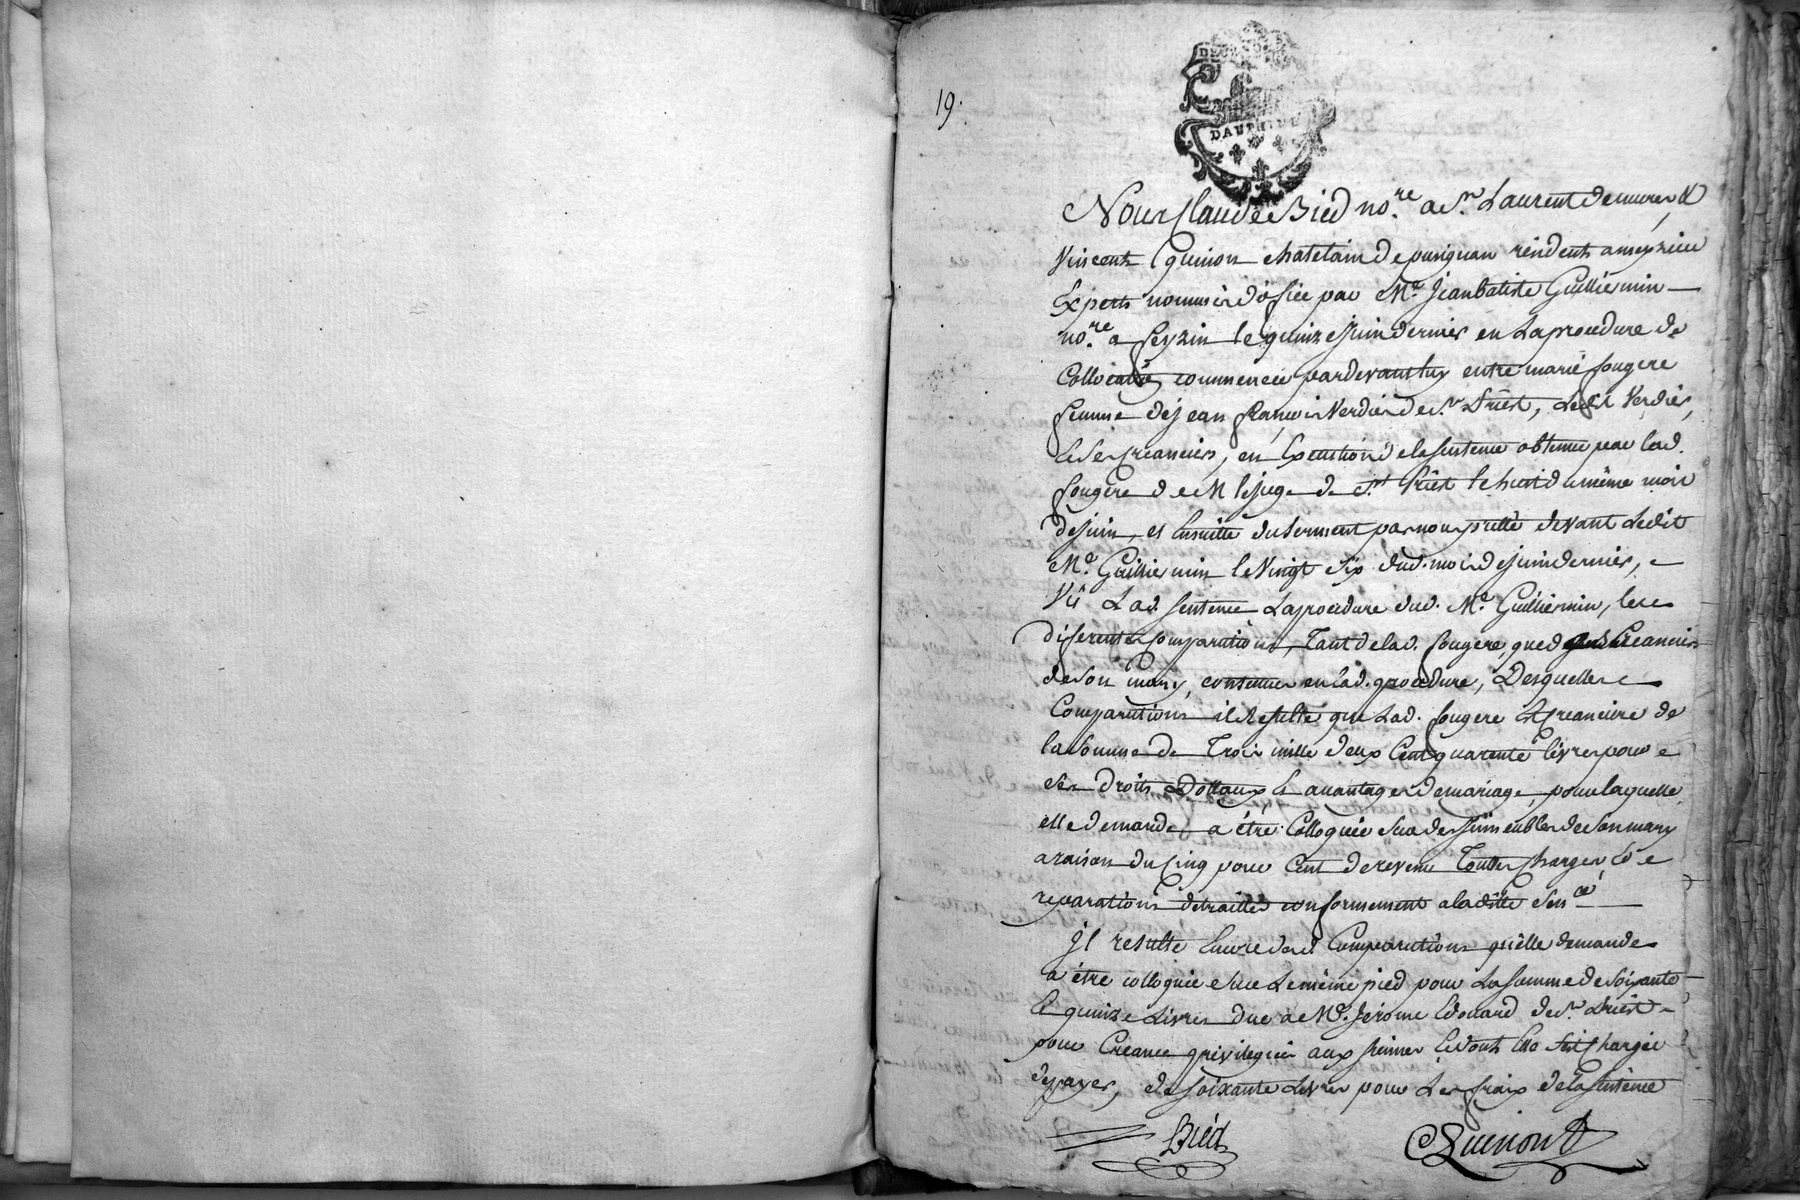 19.
DEUX SOLS
DAUPHINÉ
Nous Claude Bied no.re a St. Laurent de mures, &
Vincent Quinon chatelain de pusignan résident a meyzieu
Experts nommés d'ofice par Me. Jean batiste Guilliermin
no.re a feyzin le quinze juin dernier en La procedure de
Collocation commencée pardevant luy entre marie fougere
femme de jean françois Verdier de St. Priest, Ledit Verdier,
& Ses Creanciers, en Execution de la sentence obtenue par Lad.
fougere de M. le juge de St. Priest le huit du même mois
de juin, et Ensuitte du serment par nous prêté devant Ledit
Me. Guilliermin le Vingt Six dud. mois de juin dernier,
Vû Lad. sentence La procedure dud. Me. Guilliermin, les
diferentes comparutions, Tant de lad. fougere, que des Creanciers
de son mary, contenues en lad. procedure, Desquelles
Comparutions il Resulte que Lad. fougere Est Creanciere de
la Somme de Trois mille deux Cent quarente livres pour
Ses droits Dottaux & avantages de mariage, pour laquelle
elle demande a être Colloquée Sur des jmmeubles de Son mary
a raison du Cinq pour Cent de revenu Toutes Charges &
reparations detraittes conformement a la ditte Sen.ce
Jl resulte Encore desd. Comparutions qu'elle demande
a être colloquée Sur Le même pied pour La Somme de Soixante
& quinze Livres due a Me. Jerome Edouard de St. Priest
pour Creance privilegiée aux sienes & dont Elle s'est Chargée
de payer, de soixante Livres pour Les fraix de la Sentence
Bied
Quinon